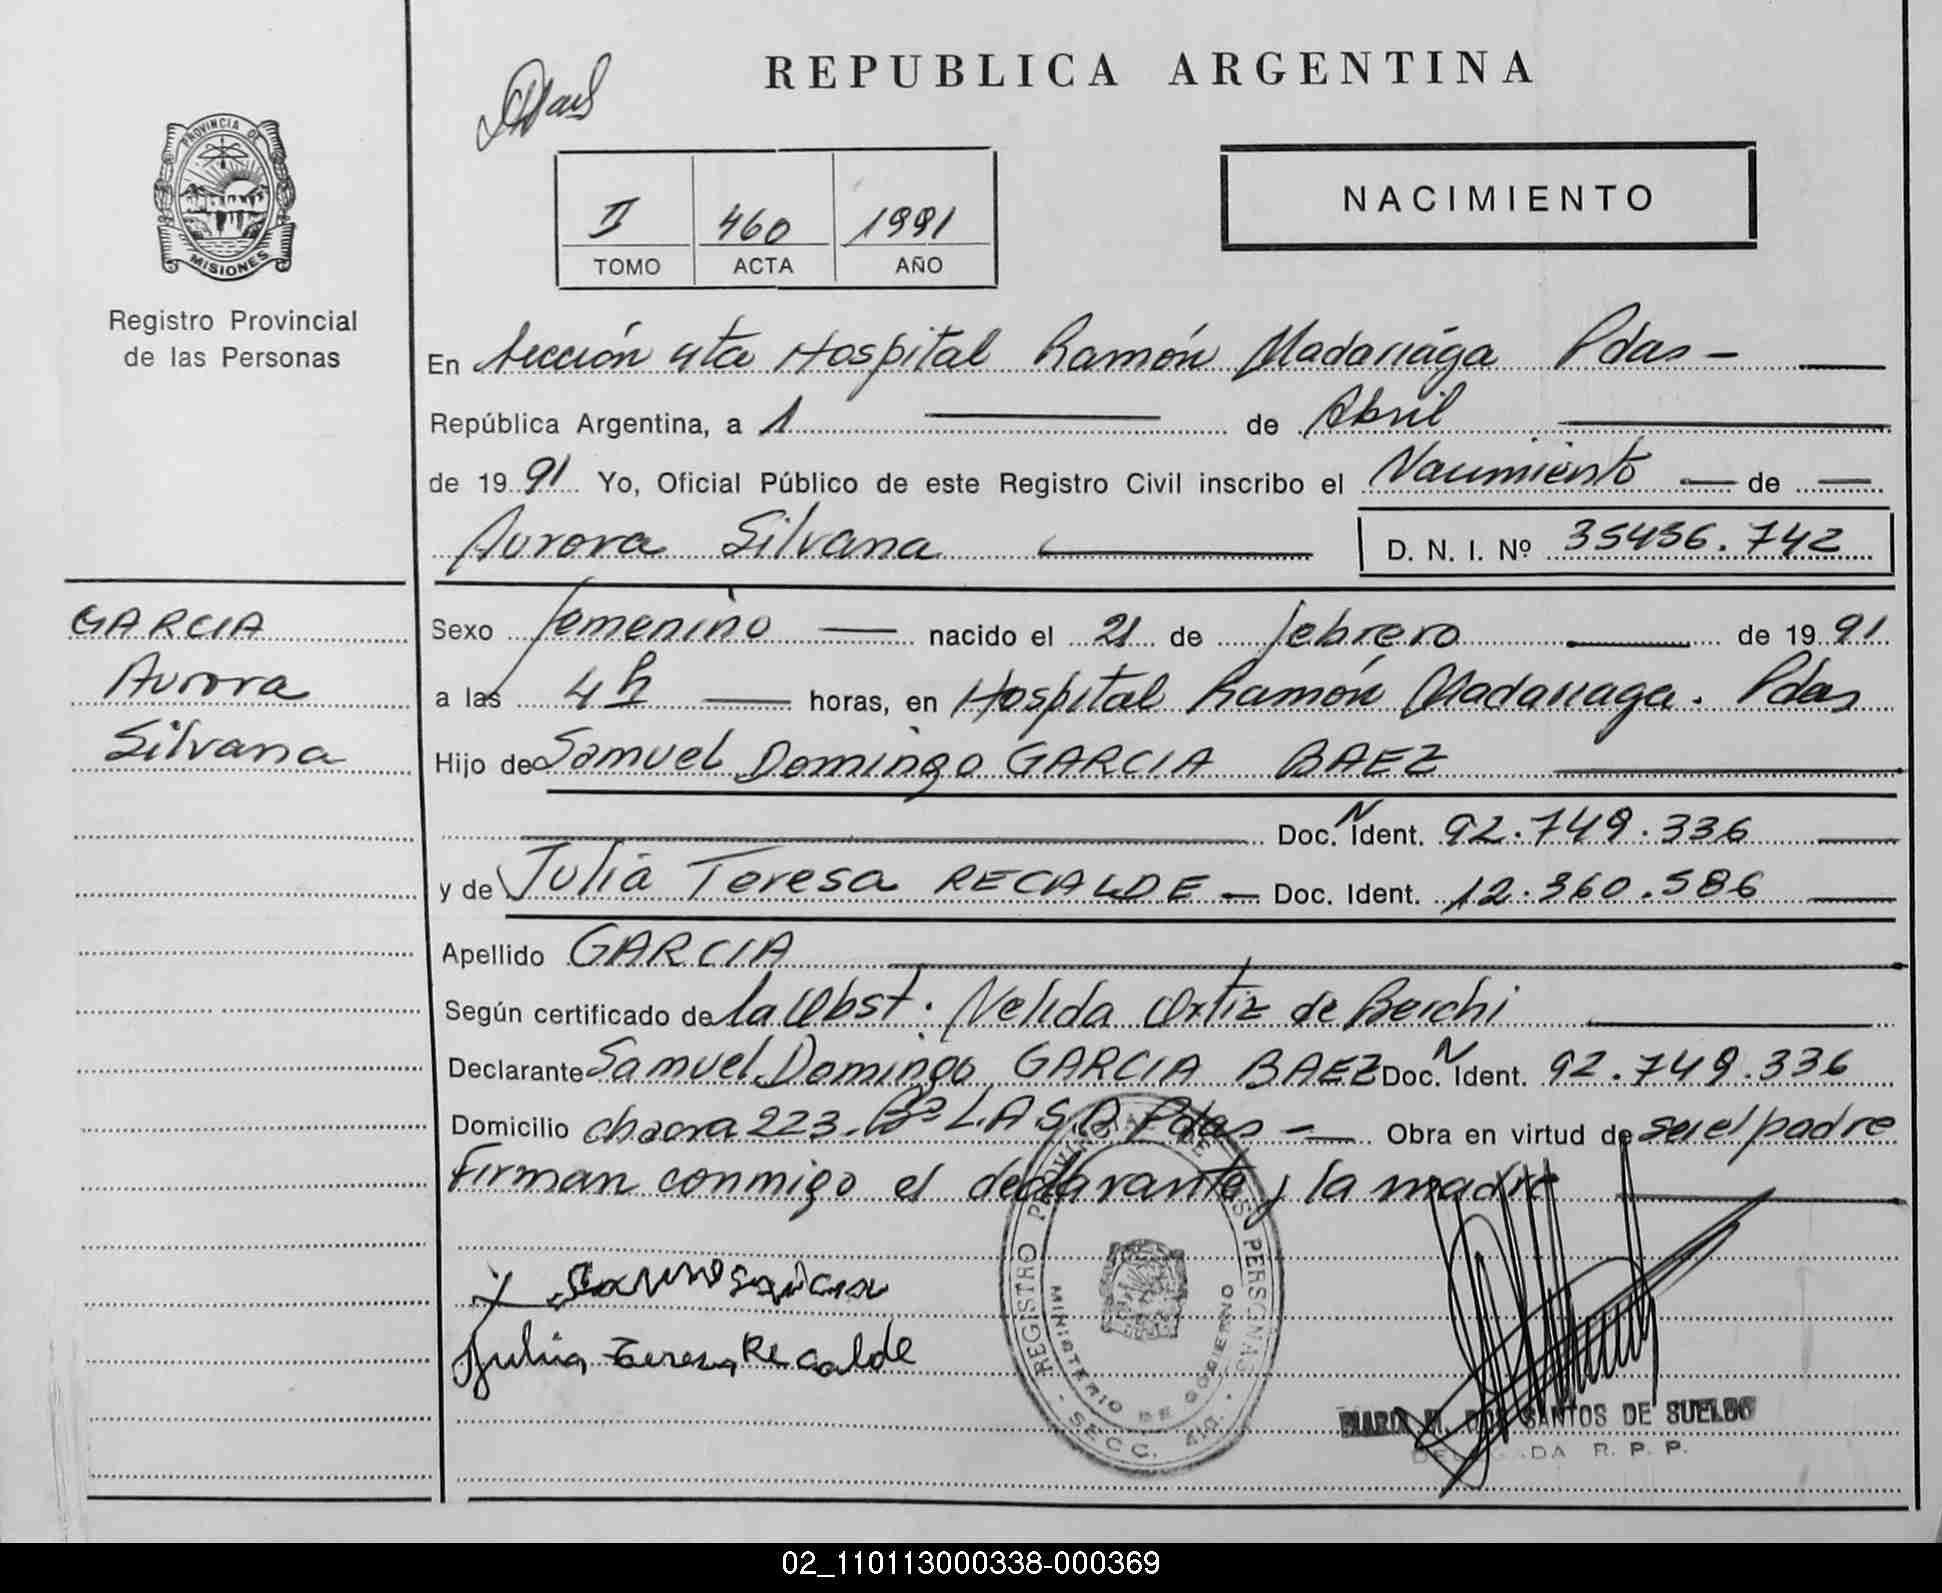 REPUBLICA ARGENTINA
PROVINCIA DE
MISIONES
Registro Provincial
de las Personas
NACIMIENTO
II 460 1991
TOMO ACTA AÑO
En Sección 4ta Hospital Ramón Madariága Pdas -
República Argentina, a 1 de Abril
de 1991 Yo, Oficial Público de este Registro Civil inscribo el Nacimiento de
Aurora Silvana D. N. I. Nº 35456.742
GARCIA
Aurora
Silvana
Sexo femenino nacido el 21 de febrero de 1991
a las 4 h horas, en Hospital Ramón Madariaga. Pdas
Hijo de Samuel Domingo GARCIA BAEZ
Doc. N Ident. 92.749.336
y de Julia Teresa RECALDE - Doc. Ident. 12.360.586
Apellido GARCIA
Según certificado de la Obst. Nelida Ortiz de Berchi
Declarante Samuel Domingo GARCIA BAEZ Doc. N Ident. 92.749.336
Domicilio chacra 223. Bº L.A.S.A Pdas - Obra en virtud de ser el padre
Firman conmigo el declarante y la madre
Julia Teresa Recalde
REGISTRO PROVINCIAL DE LAS PERSONAS
MINISTERIO DE GOBIERNO
- SECC. 4ta. -
DOS SANTOS DE SUELDO
DELEGADA R. P. P.
02_110113000338-000369